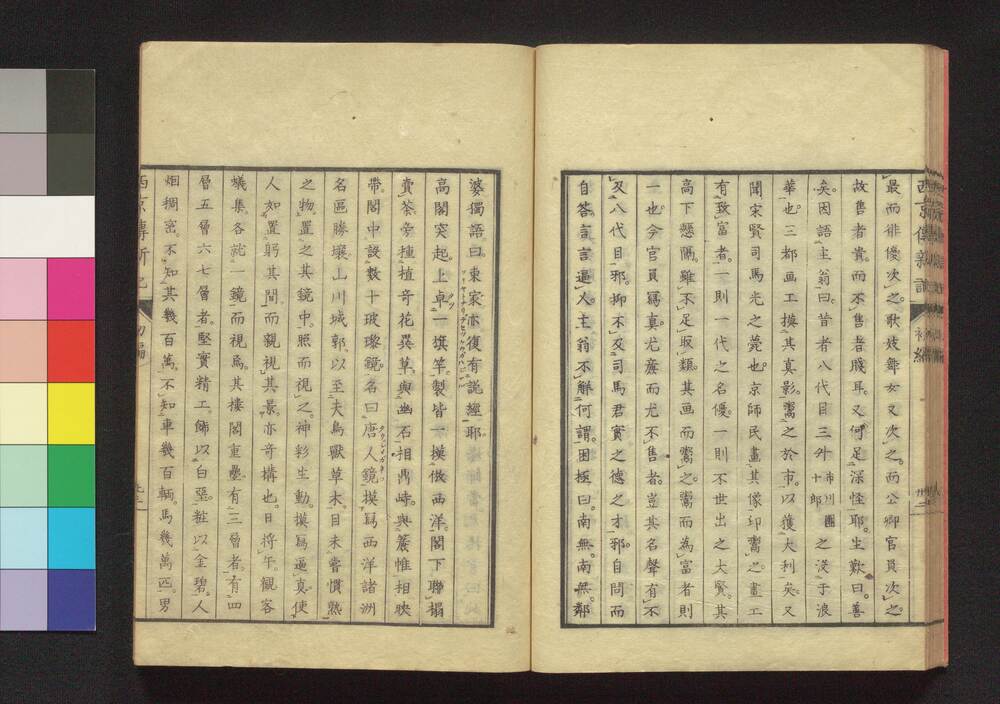 最而俳優次之。歌妓舞女又次之。而公卿官員次之。
故售者貴。而不售者賤耳。又何足深怪耶。生歎曰。善
矣。因語主翁曰。昔者八代目三舛市川團十郎之沒于浪
華也。三都画工摸其真影。鬻之於市。以獲大利矣。又
聞宋賢司馬光之薨也。京師民畫其像印鬻之。畫工
有致富者。一則一代之名優。一則不世出之大賢。其
高下懸隔。雖不足取類。其画而鬻之。鬻而為富者則
一也。今官員寫真。尤廉而尤不售者。豈其名聲有不
及八代目邪。抑不及司馬君實之德之才邪。自問而
自答。言言逼人。主翁不解何謂。困極曰。南無。南無。鄰
婆獨語曰。東家亦復有説經耶。
高閣突起。上卓一旗竿。製皆一摸倣西洋。閣下聯榻
賣茶。旁種植奇花異草。與幽石相鼎峙。與簾帷相映
帶。閣中設數十玻瓈鏡。名曰唐人鏡。摸寫西洋諸洲
名區勝壤。山川城郭。以至夫鳥獸草木。目未嘗慣熟
之物。置之其鏡中。照而視之。神彩生動。摸寫逼真。使
人如置躬其間而親視其景。亦奇構也。日將午。観客
蟻集。各就一鏡而視焉。其樓閣重疊。有三層者。有四
層五層六七層者。堅實精工。飾以白堊。粧以金碧。人
烟稠密。不知其幾百萬。不知車幾百輛。馬幾萬匹。男
西京傳新記
初編